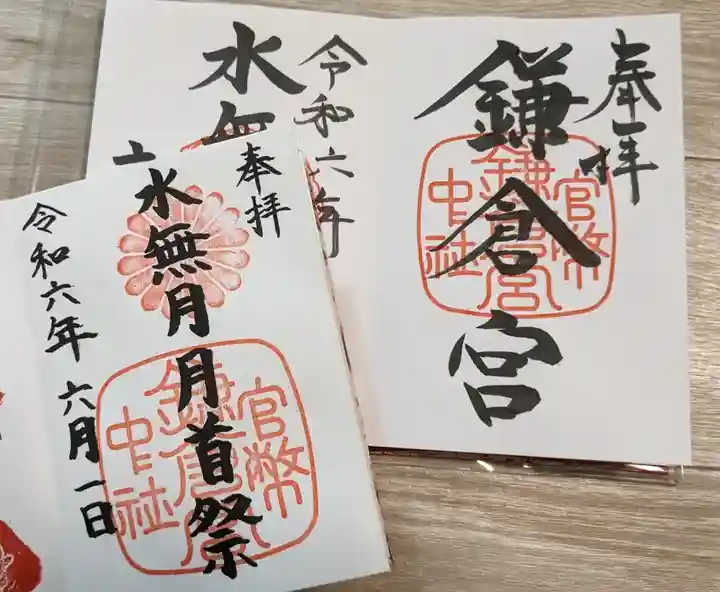 奉拝
鎌倉宮
官幣
鎌倉宮
中社
令和六年
水無
奉拝
水無月月首祭
官幣
鎌倉宮
中社
令和六年 六月一日